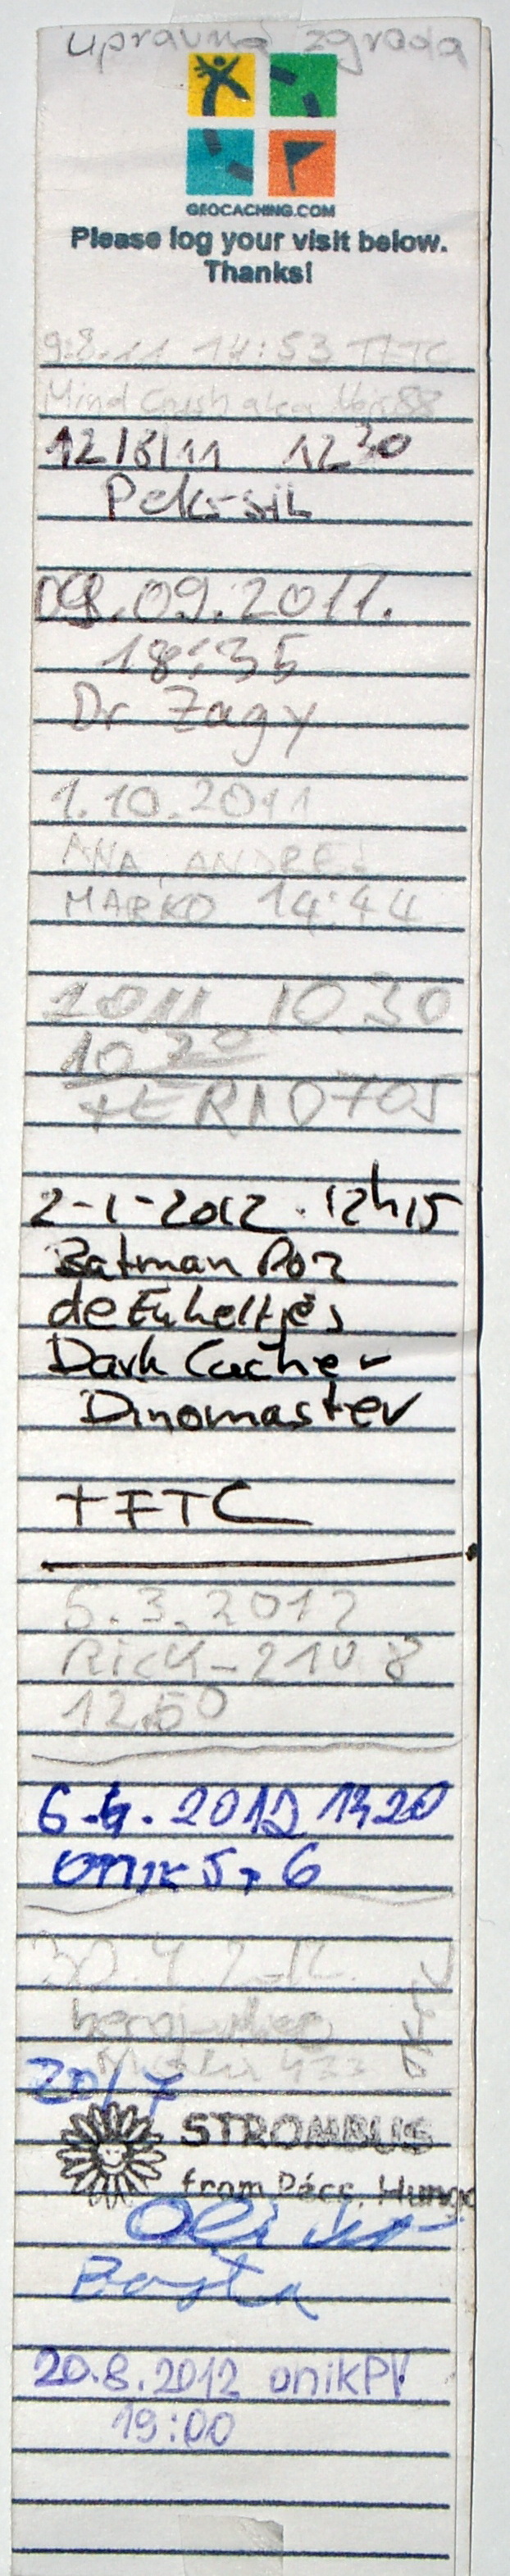 upravna zgrada
GEOCACHING.COM
Please log your visit below.
Thanks!
9.8.11 14:53 TFTC
Mind Crush aka
12/8/11 12 30
Pek-sil
09.09.2011.
18:35
Dr Zagy
1.10.2011
ANA, ANDREJ
MARKO 14:44
10 30
10 20
0705
2-1-2012 . 12h15
Batman
Dark Cacher
Dinomaster
TFTC
5.3.2012
Rick-2108
12:50
6.4.2012 1320
onik 5, 6
30.4
20/7
STROMBUS
from Pécs, Hunga
20.8.2012 onikPV
19:00